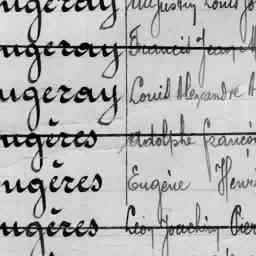 ugeray Augustin Louis Jo
ugeray Francis Jean
ugeray Louis Alexandre
ugères Adolphe françois
ugères Eugène Henri
ugères Léon Joachim Pier